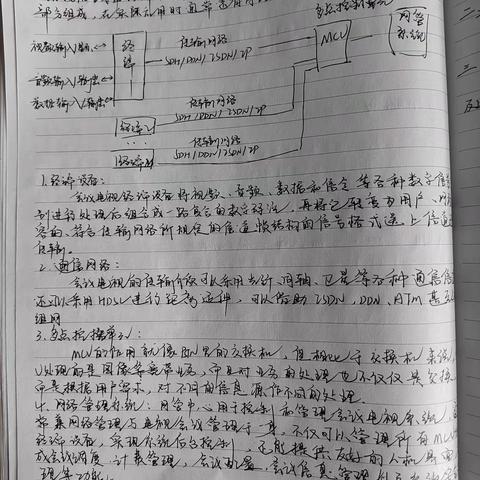 部分组成，在实际应用时通常还有网
多点控制单元
视频输入/输出
终端
传输网络
SDH/DDN/ISDN/IP
MCU
网管系统
音频输入/输出
数据输入/输出
传输网络
终端2
SDH/DDN/ISDN/IP
传输网络
终端n
SDH/DDN/ISDN/IP
1.终端设备：
会议电视终端设备将视频、音频、数据和信令等各种数字信号
别进行处理后组合成一路复合的数字码流，再将它转变为用户、网
容的、符合传输网络所规定的信道帧结构的信号格式送上信道
传输。
2.通信网络：
会议电视的传输介质可以采用光纤、同轴、卫星等各种通信信
还可以采用HDSL进行距离延伸，可以借助ISDN、DDN、ATM甚至
组网
3.多点控制单元：
MCU的作用就像电话里的交换机，但
处理的是图像等宽带业务，而且对业务的处理也不仅仅是交换
而是根据用户要求，对不同的信息源作不同的处理。
4.网络管理系统：网管中心用于控制和管理会议电视系统，
常集网络管理与电视会议管理于一身，不仅可以管理所有MCU
终端设备，实现系统后台控制，还能提供友好的人机界面
成会议调度、计费管理，会议配置，会议信息管理
理等功能。